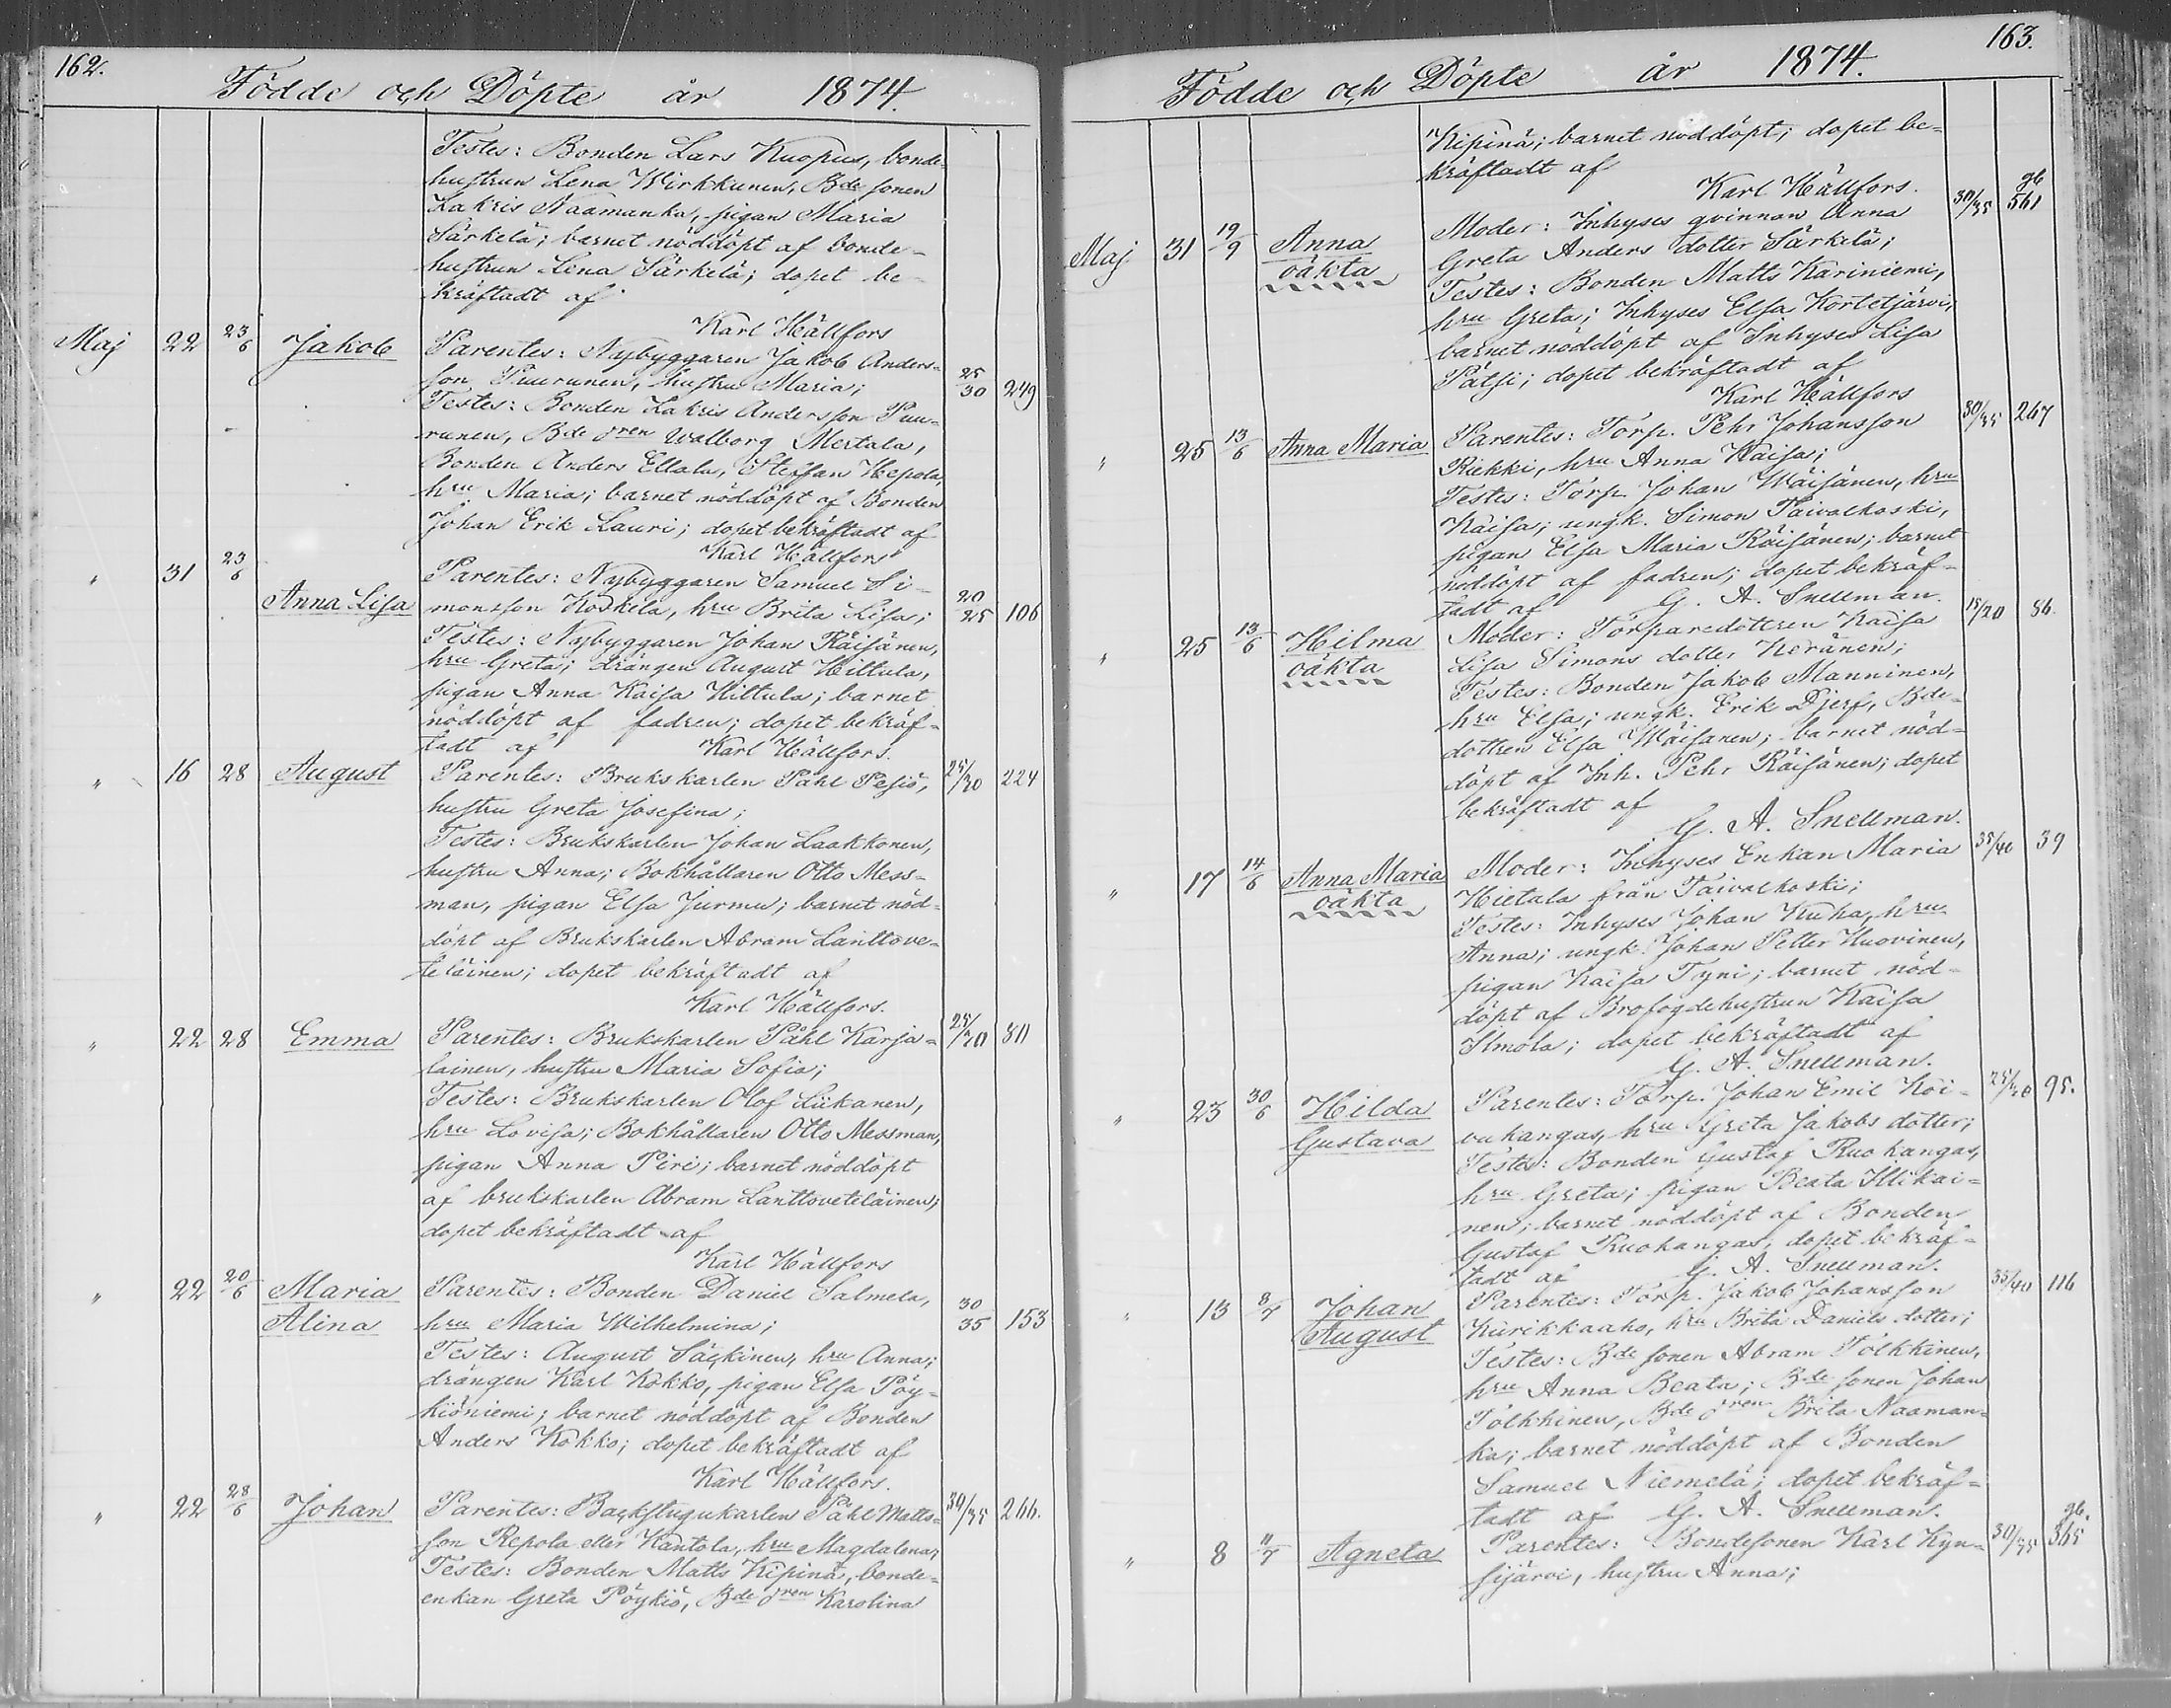 162.
Födde och Döpte år 1874.
Testes: Bonden Lars Kuopus, bonde-
hustrun Lena Wirkkunen, Bde sonen
Zakris Naamanka, pigan Maria
Särkelä; barnet nöddöpt af bonde-
hustrun Lena Särkelä; dopet be-
kräftadt af
Karl Hällfors
Maj 22 23/6 Jakob Parentes: Nybyggaren Jakob Anders-
son Puurunen, hustru Maria; 25/30 249
Testes: Bonden Zakris Andersson Puu-
runen, Bde dren Walborg Mertala,
Bonden Anders Ellala, Steffan Hepola,
hru Maria; barnet nöddöpt af Bonden
Johan Erik Lauri; dopet bekräftadt af
Karl Hällfors
" 31 23/6 Parentes: Nybyggaren Samuel Si-
Anna Lisa monsson Koskela, hru Brita Lisa; 20/25 106
Testes: Nybyggaren Johan Räisänen,
hru Greta; drängen August Hiltula,
pigan Anna Kaisa Hiltula; barnet
nöddöpt af fadren; dopet bekräf-
tadt af Karl Hällfors.
" 16 28 August Parentes: Brukskarlen Påhl Pesiö, 25/30 224
hustru Greta Josefina;
Testes: Brukskarlen Johan Laakkonen,
hustru Anna; Bokhållaren Otto Mess-
man, pigan Elsa Jurmu; barnet nöd-
döpt af Brukskarlen Abram Lanttove-
teläinen; dopet bekräftadt af
Karl Hällfors.
" 22 28 Emma Parentes: Brukskarlen Påhl Karja- 25/30 80
lainen, hustru Maria Sofia;
Testes: Brukskarlen Olof Liikanen,
hru Lovisa; Bokhållaren Otto Messman,
pigan Anna Piri; barnet nöddöpt
af brukskarlen Abram Lanttoveteläinen;
dopet bekräftadt af
Karl Hällfors
" 22 20/6 Maria Parentes: Bonden Daniel Salmela,
Alina hru Maria Wilhelmina; 30/35 153
Testes: August Säckinen, hru Anna;
drängen Karl Kokko, pigan Elsa Pöy-
kiöniemi; barnet nöddöpt af Bonden
Anders Kokko; dopet bekräftadt af
Karl Hällfors.
" 22 28/6 Johan Parentes: Backstugukarlen Påhl Matts- 30/35 266.
son Repola eller Kantola, hru Magdalena;
Testes: Bonden Matts Kipinä, bonde-
enkan Greta Pöykiö, Bde dren Karolina
163.
Födde och Döpte år 1874.
Kipinä; barnet nöddöpt; dopet be-
kräftadt af
Karl Hällfors.
Maj 31 19/9 Anna Moder: Inhyses qvinnan Anna 30/35 gb 561
oäkta Greta Anders dotter Särkelä;
Testes: Bonden Matts Kariniemi,
hru Greta; Inhyses Elsa Kortetjärvi,
barnet nöddöpt af Inhyses Lisa
Pätsi; dopet bekräftadt af
Karl Hällfors
" 25 13/6 Anna Maria Parentes: Torp. Pehr Johansson 30/35 267
Riekki, hru Anna Kaisa;
Testes: Torp. Johan Wäisänen, hru
Kaisa; ungk. Simon Taivalkoski,
pigan Elsa Maria Räisänen; barnet
nöddöpt af fadren; dopet bekräf-
tadt af G. A. Snellman.
" 25 13/6 Hilma Moder: Torparedottren Kaisa 15/20 86.
oäkta Lisa Simons dotter Keränen;
Testes: Bonden Jakob Manninen,
hru Elsa; ungk. Erik Djerf, Bde-
dottren Elsa Wäisänen; barnet nöd-
döpt af Inh. Pehr Räisänen; dopet
bekräftadt af
G. A. Snellman.
" 17 14/6 Anna Maria Moder: Inhyses Enkan Maria 35/40 39
oäkta Hietala från Taivalkoski;
Testes: Inhyses Johan Kuha, hru
Anna; ungk. Johan Petter Huovinen,
pigan Kaisa Tyni; barnet nöd-
döpt af Brofogdehustrun Kaisa
Ilmola; dopet bekräftadt af
G. A. Snellman.
" 23 30/6 Hilda Parentes: Torp. Johan Emil Koi- 25/30 95.
Gustava vukangas, hru Greta Jakobs dotter;
Testes: Bonden Gustaf Ruokangas,
hru Greta; pigan Beata Illikai-
nen; barnet nöddöpt af Bonden
Gustaf Ruokangas; dopet bekräf-
tadt af G. A. Snellman.
" 13 8/7 Johan Parentes: Torp. Jakob Johansson 35/40 116
August Kurikkaaho, hru Brita Daniels dotter;
Testes: Bde sonen Abram Tolkkinen,
hru Anna Beata; Bde sonen Johan
Tolkkinen, Bde dren Brita Naaman-
ka; barnet nöddöpt af Bonden
Samuel Niemelä; dopet bekräf-
tadt af G. A. Snellman.
" 8 11/7 Agneta Parentes: Bondesonen Karl Kyn- 30/35 gb. 565
sijärvi, hustru Anna;